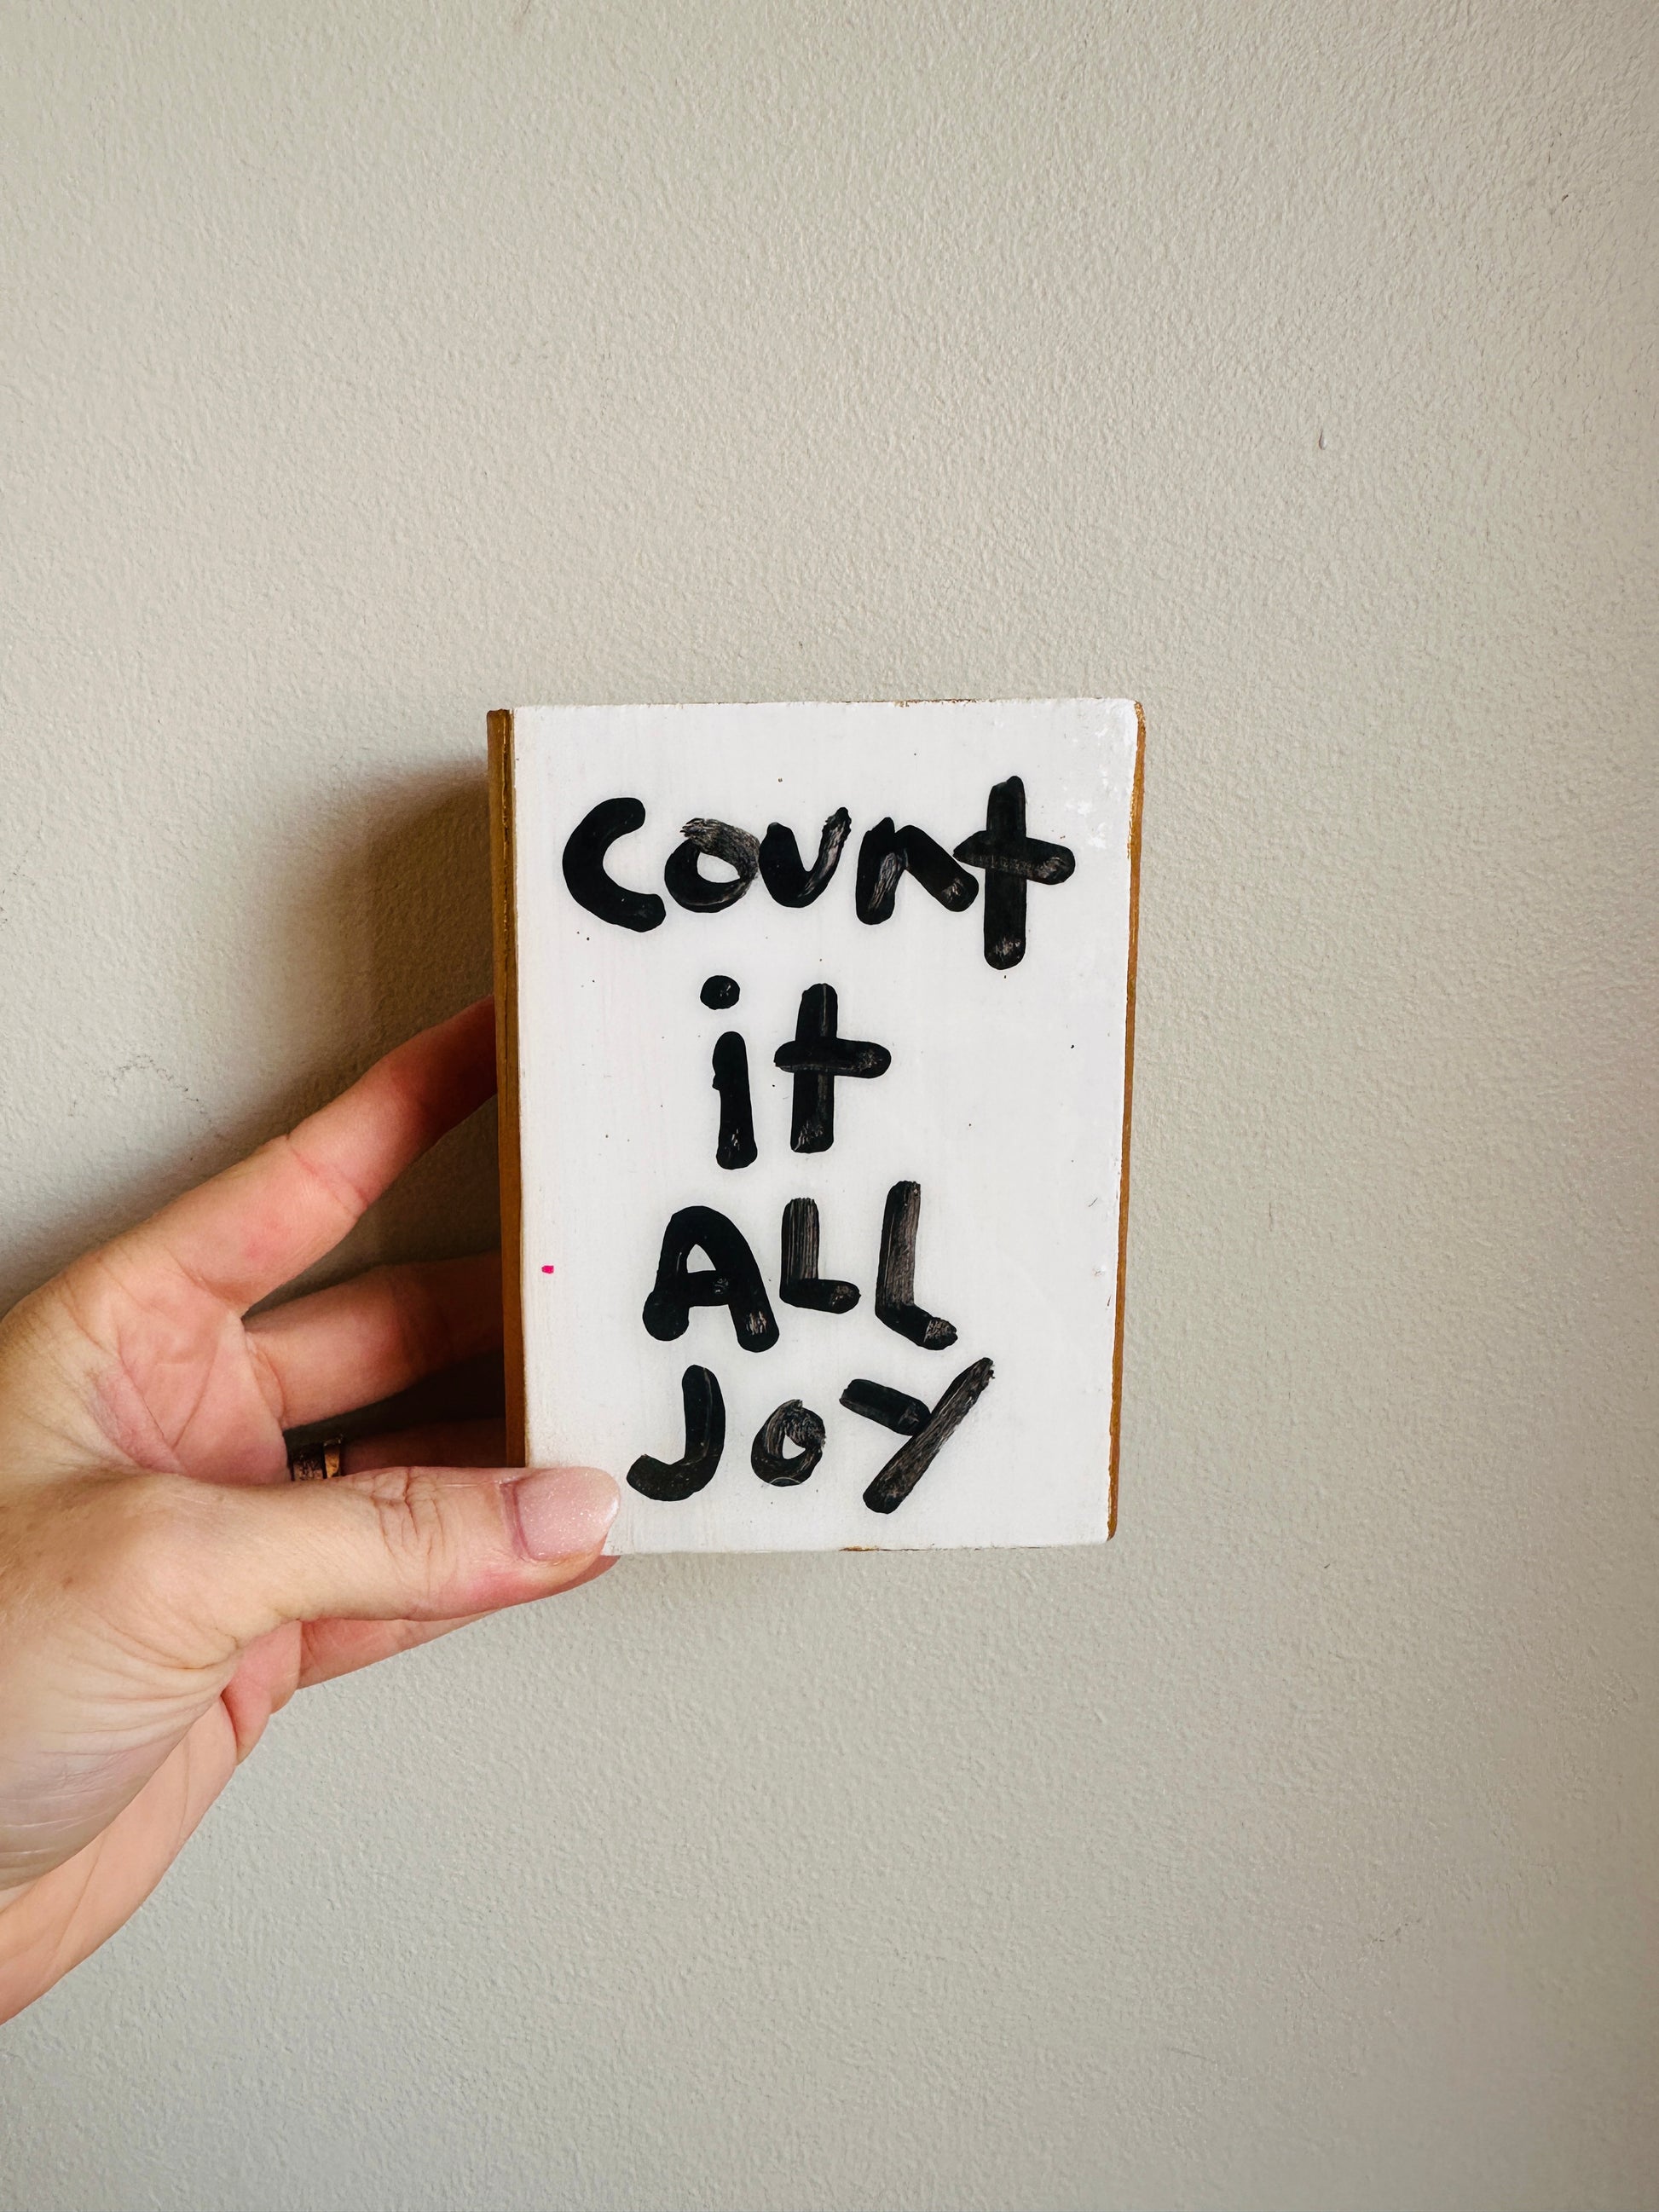 count
it
ALL
JoY